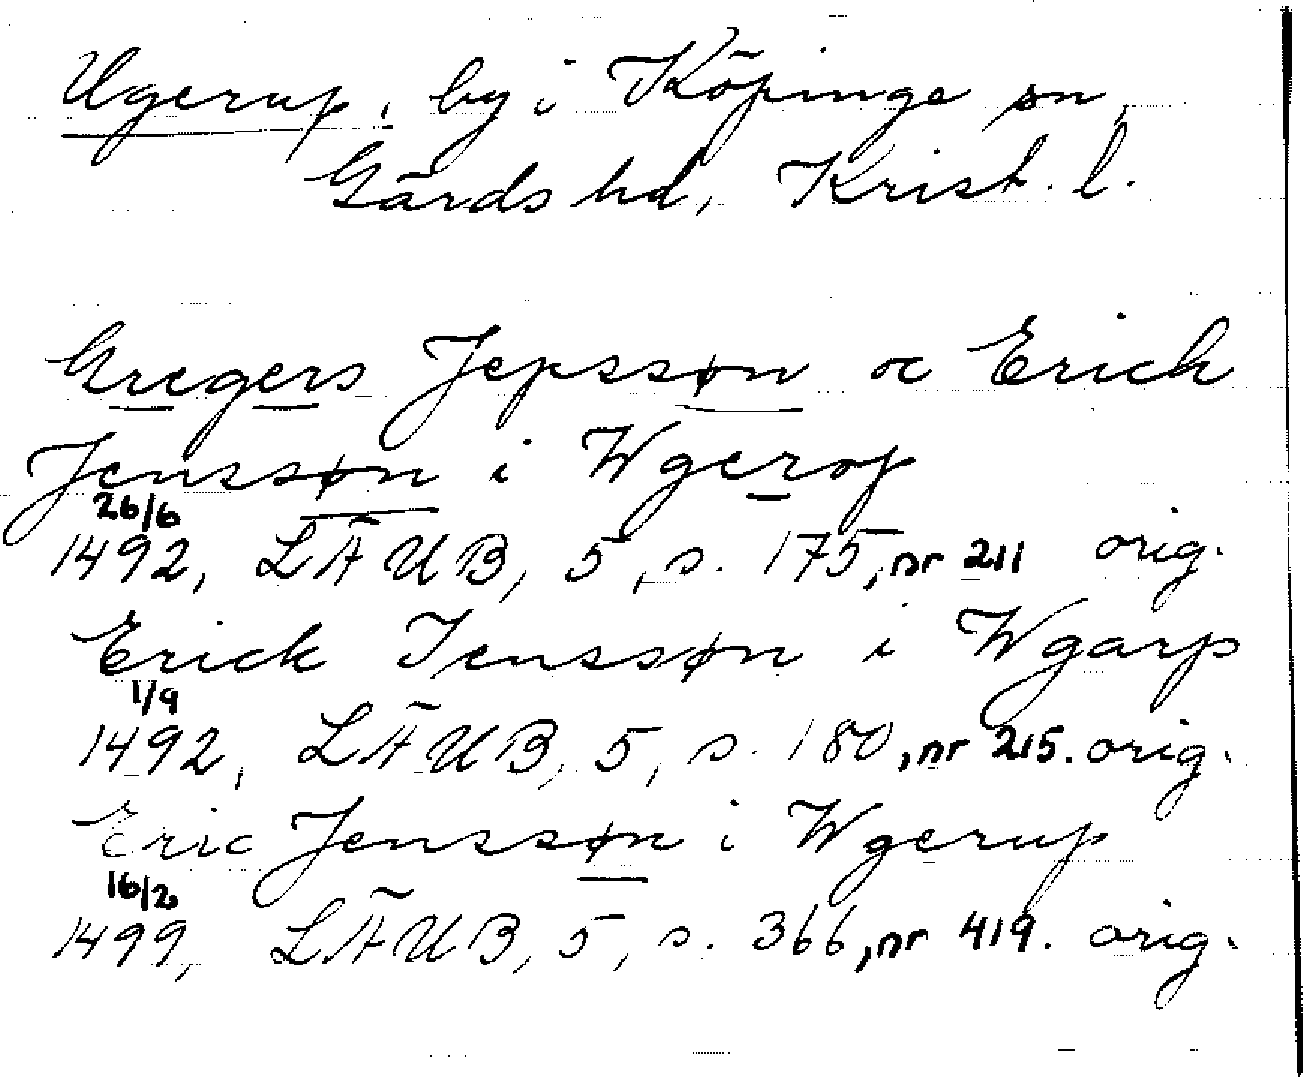 Ugerup, by i Köpinge sn,
Gärds hd, Krist. l.
Gregers Jepssøn oc Erich
Jenssøn i Wgerop
26/6
1492, LÄUB, 5, s. 175, nr 211 orig.
Erick Jenssøn i Wgarp
1/9
1492, LÄUB, 5, s. 180, nr 215. orig.
Eric Jenssøn i Wgerup
16/2
1499, LÄUB, 5, s. 366, nr 419. orig.